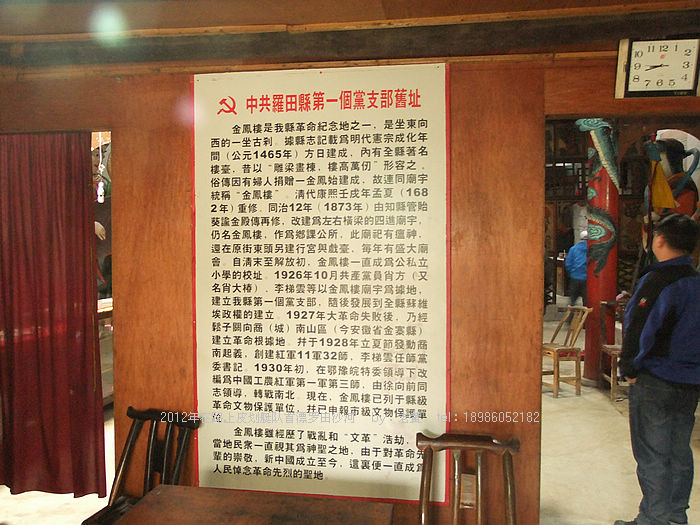 中共羅田縣第一個黨支部舊址
金鳳樓是我縣革命紀念地之一，是坐東向
西的一坐古刹。據縣志記載爲明代憲宗成化年
間（公元1465年）方日建成，內有全縣著名
樓臺，昔以“雕梁畫棟，樓高萬仞”形容之，
俗傳因有婦人捐贈一金鳳始建成，故連同廟宇
統稱“金鳳樓”。清代康熙壬戌年孟夏（168
2年）重修，同治12年（1873年）由知縣管貽
葵諭金殿傳再修，改建爲左右橫梁的四進廟宇，
仍名金鳳樓，作爲鄉課公所，此廟祀有瘟神，
還在原街東頭另建行宮與戲臺，每年有盛大廟
會。自清末至解放初，金鳳樓一直成爲公私立
小學的校址。1926年10月共產黨員肖方（又
名肖大椿），李梯雲等以金鳳樓廟宇爲據地，
建立我縣第一個黨支部，隨後發展到全縣蘇維
埃政權的建立。1927年大革命失敗後，乃經
鬆子關向商（城）南山區（今安徽省金寨縣）
建立革命根據地。幷于1928年立夏節發動商
南起義，創建紅軍11軍32師，李梯雲任師黨
委書記。1930年初，在鄂豫皖特委領導下改
編爲中國工農紅軍第一軍第三師，由徐向前同
志領導，轉戰南北。現在，金鳳樓已列爲縣級
革命文物保護單位，幷已申報市級文物保護單
金鳳樓雖經歷了戰亂和“文革”浩劫，
當地民衆一直視其爲神聖之地，由于對革命先
輩的崇敬，新中國成立至今，這裏便一直成爲
人民悼念革命先烈的聖地。
12
1
2
3
4
5
6
7
8
9
10
11
2012年 tel：18986052182